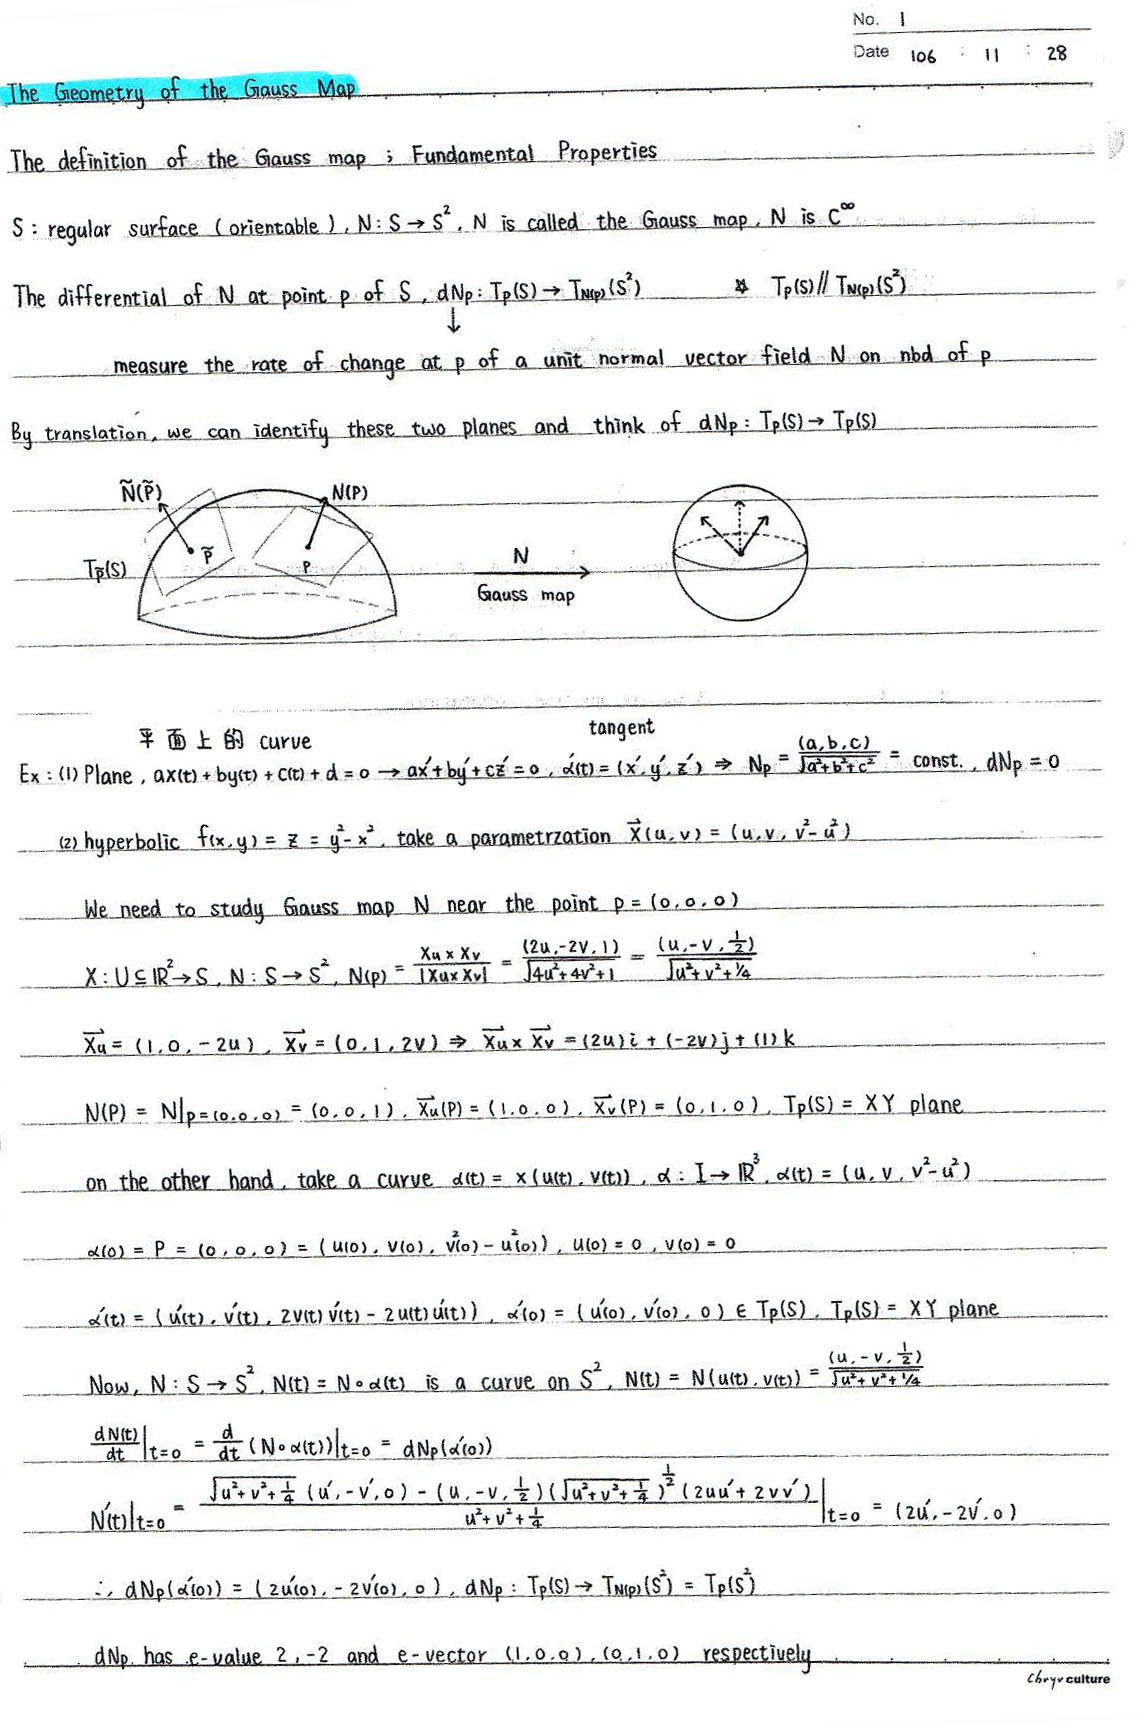 No. 1
Date 106 : 11 : 28
The Geometry of the Gauss Map
The definition of the Gauss map ; Fundamental Properties
S : regular surface (orientable), N : S → S², N is called the Gauss map, N is C^∞
The differential of N at point p of S, dNp : Tp(S) → T_N(p)(S²) ☆ Tp(S) // T_N(p)(S²)
↓
measure the rate of change at p of a unit normal vector field N on nbd of p
By translation, we can identify these two planes and think of dNp : Tp(S) → Tp(S)
Ñ(P̃) N(P)
P̃ P
Tp̃(S)
N
Gauss map
平面上的 curve tangent
Ex : (1) Plane, ax(t) + by(t) + c(t) + d = 0 → ax' + by' + cz' = 0, α'(t) = (x', y', z') ⇒ Np = (a,b,c)/√(a²+b²+c²) = const., dNp = 0
(2) hyperbolic f(x,y) = z = y² - x², take a parametrzation X⃗(u,v) = (u,v, v²-u²)
We need to study Gauss map N near the point p = (0,0,0)
X : U ⊆ ℝ² → S, N : S → S², N(p) = (Xu × Xv)/|Xu × Xv| = (2u,-2v,1)/√(4u²+4v²+1) = (u,-v,1/2)/√(u²+v²+1/4)
X⃗u = (1,0,-2u), X⃗v = (0,1,2v) ⇒ X⃗u × X⃗v = (2u)i + (-2v)j + (1)k
N(P) = N|p=(0,0,0) = (0,0,1), X⃗u(P) = (1,0,0), X⃗v(P) = (0,1,0), Tp(S) = XY plane
on the other hand, take a curve α(t) = x(u(t), v(t)), α : I → ℝ³, α(t) = (u, v, v²-u²)
α(0) = P = (0,0,0) = (u(0), v(0), v²(0) - u²(0)), u(0) = 0, v(0) = 0
α'(t) = (u'(t), v'(t), 2v(t)v'(t) - 2u(t)u'(t)), α'(0) = (u'(0), v'(0), 0) ∈ Tp(S), Tp(S) = XY plane
Now, N : S → S², N(t) = N∘α(t) is a curve on S², N(t) = N(u(t), v(t)) = (u,-v,1/2)/√(u²+v²+1/4)
dN(t)/dt|t=0 = d/dt (N∘α(t))|t=0 = dNp(α'(0))
N'(t)|t=0 = [√(u²+v²+1/4) (u',-v',0) - (u,-v,1/2)(√(u²+v²+1/4))^(1/2) (2uu' + 2vv')]/(u²+v²+1/4) |t=0 = (2u', -2v', 0)
∴ dNp(α'(0)) = (2u'(0), -2v'(0), 0), dNp : Tp(S) → T_N(p)(S²) = Tp(S²)
dNp has e-value 2, -2 and e-vector (1,0,0), (0,1,0) respectively
culture